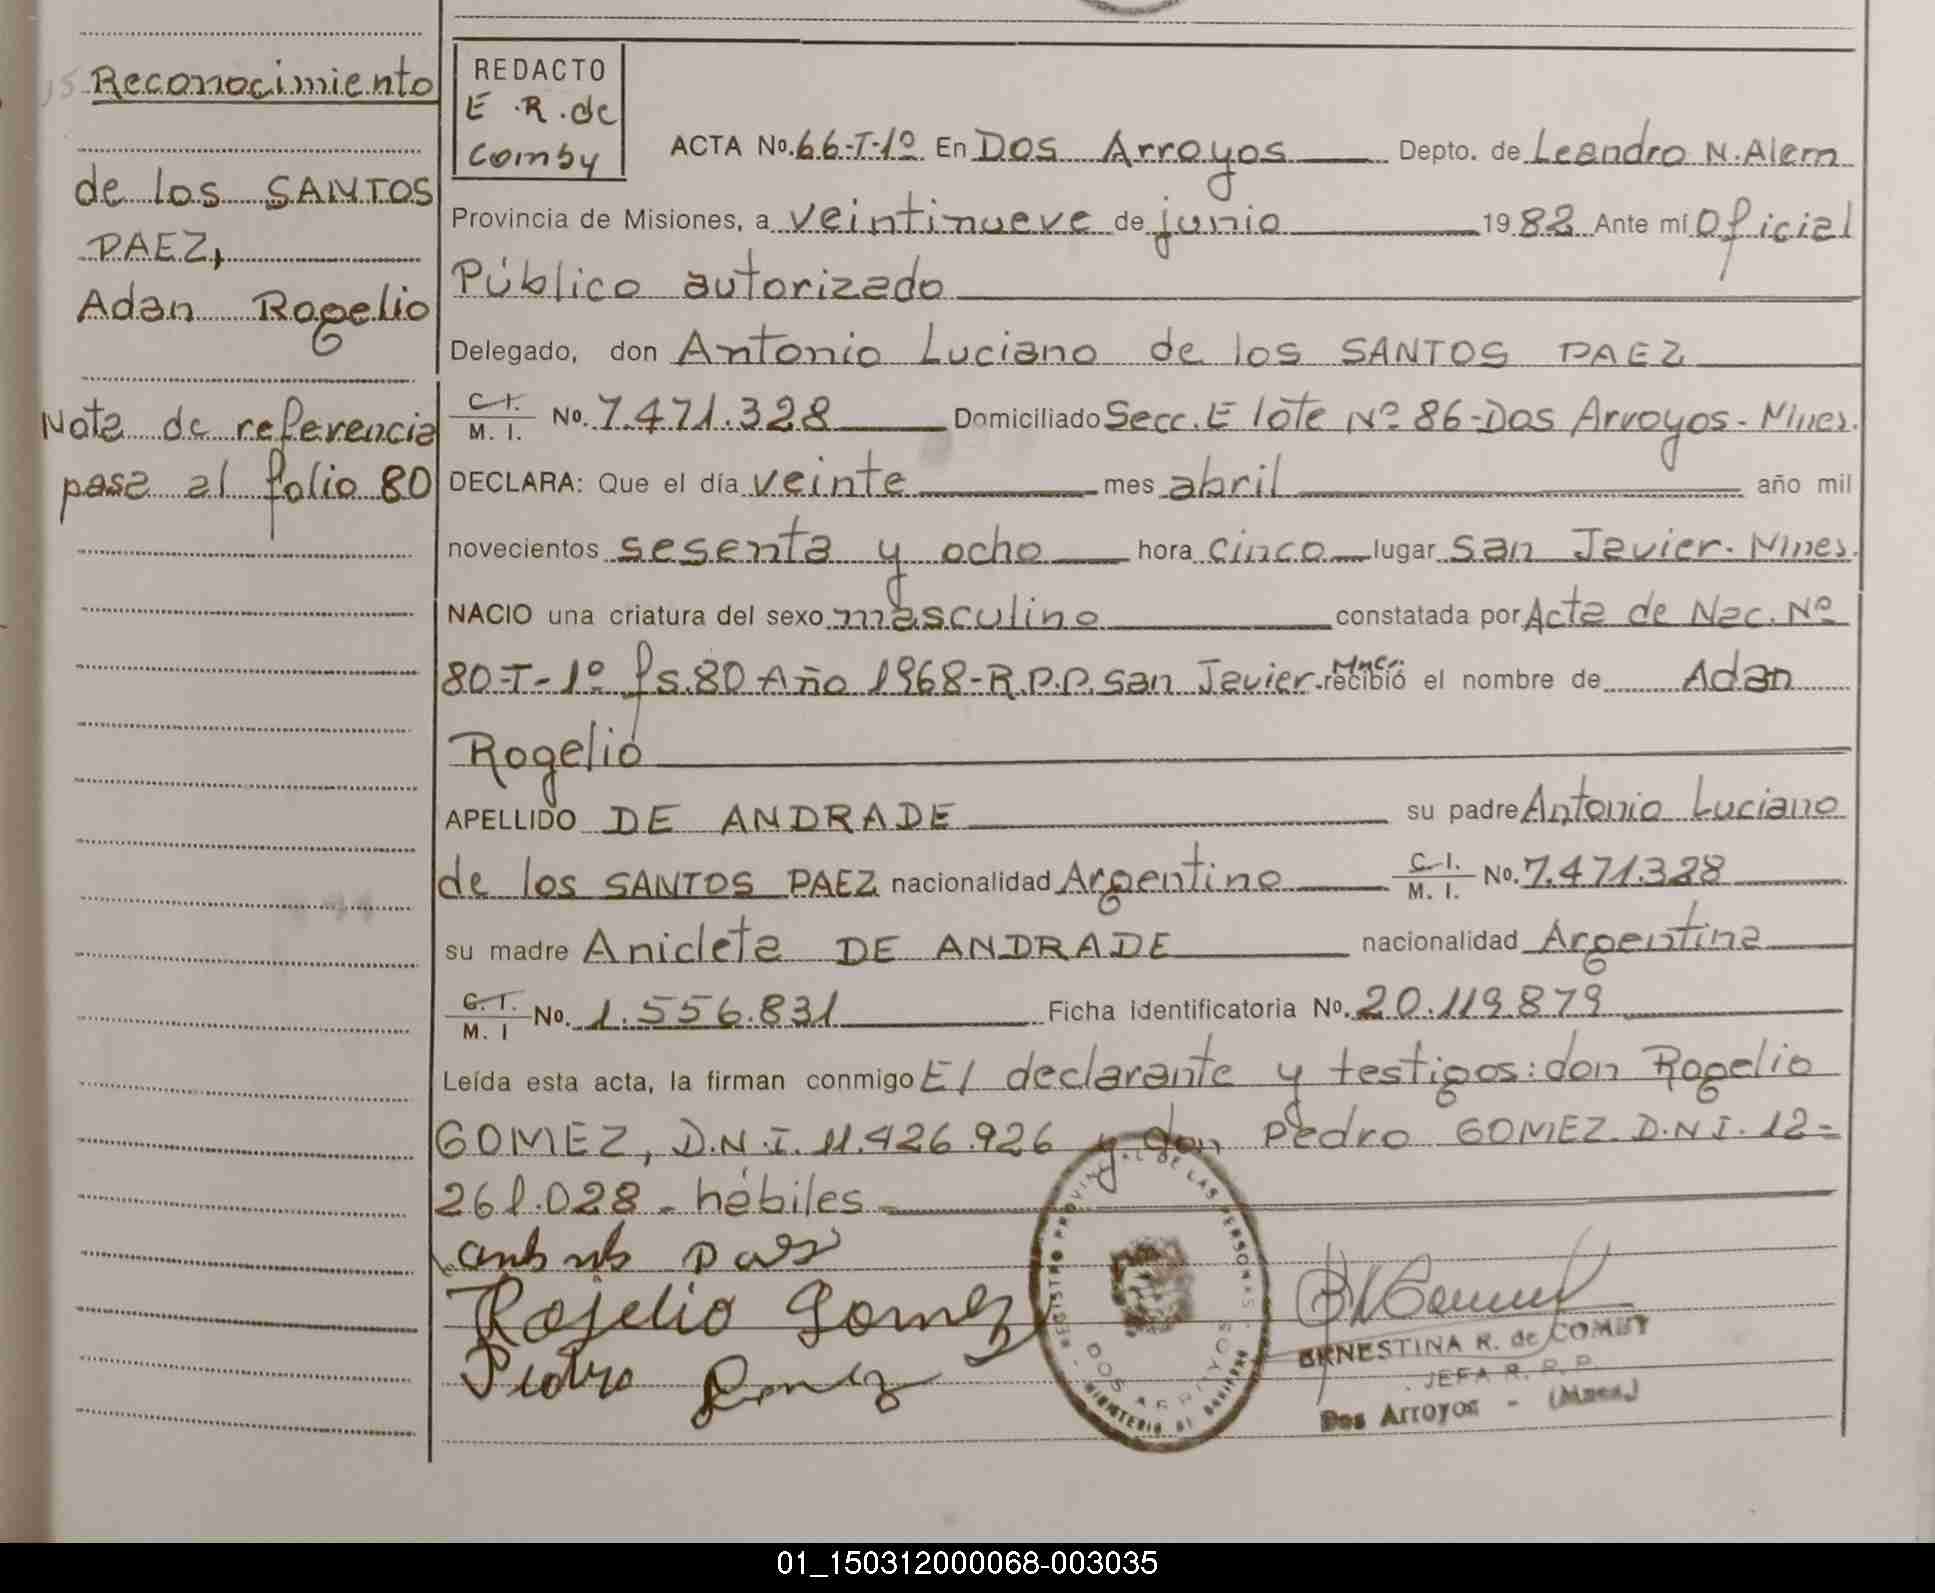 Reconocimiento
de los SANTOS
PAEZ,
Adan Rogelio
Nota de referencia
pasa al folio 80
REDACTO
E.R.de
Comby
ACTA No. 66-T-1º En Dos Arroyos Depto. de Leandro N. Alem
Provincia de Misiones, a veintinueve de junio 1988 Ante mí Oficial
Público autorizado
Delegado, don Antonio Luciano de los SANTOS PAEZ
C.I. M. I. No. 7.471.328 Domiciliado Secc. E lote Nº 86-Dos Arroyos-Mnes.
DECLARA: Que el día veinte mes abril año mil
novecientos sesenta y ocho hora cinco lugar San Javier-Mnes.
NACIO una criatura del sexo masculino constatada por Acta de Nac. Nº
80-T-1º fs.80 Año 1968-R.P.P. San Javier-Mnes. recibió el nombre de Adan
Rogelio
APELLIDO DE ANDRADE su padre Antonio Luciano
de los SANTOS PAEZ nacionalidad Argentino C.I. M. I. No. 7.471.328
su madre Anicleta DE ANDRADE nacionalidad Argentina
C.I. M. I No. 1.556.831 Ficha identificatoria No. 20.119.879
Leída esta acta, la firman conmigo El declarante y testigos: don Rogelio
GOMEZ, D.N.I. 11.426.926 y don Pedro GOMEZ D.N.I. 12-
261.028 - hábiles -
Rojelio Gomez
Pedro Gomez
REGISTRO PROVINCIAL DE LAS PERSONAS
DOS ARROYOS
MINISTERIO DE GOBIERNO
ERNESTINA R. de COMBY
JEFA R. P. P.
Dos Arroyos - (Mnes.)
01_150312000068-003035